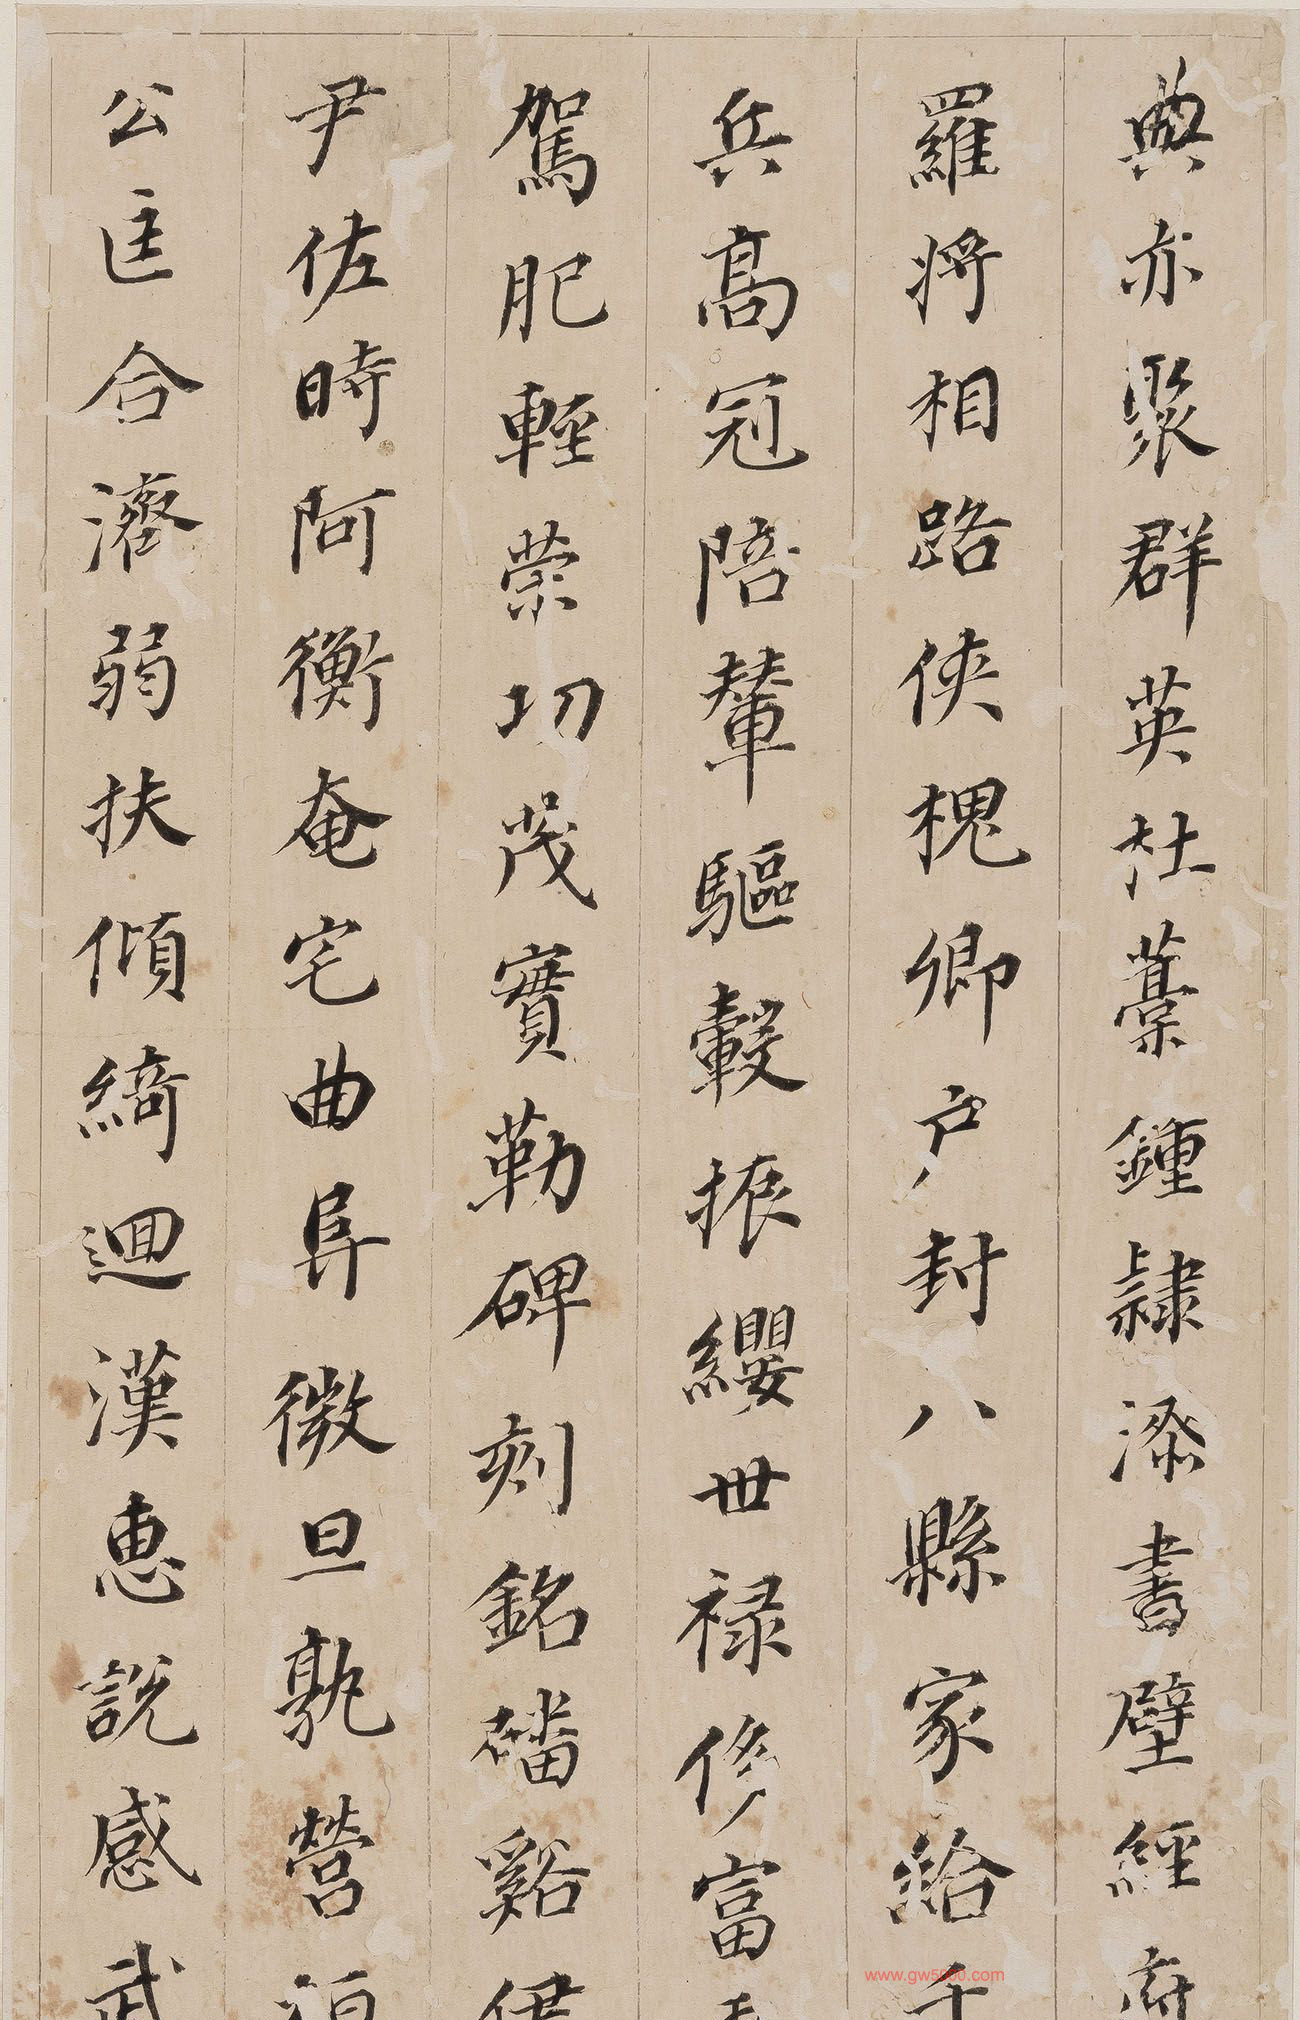 典亦聚群英杜藁鍾隸漆書壁經府
羅將相路俠槐卿户封八縣家給千
兵高冠陪輦驅轂振纓世禄侈富車
駕肥輕榮功茂實勒碑刻銘磻谿伊
尹佐時阿衡奄宅曲阜微旦孰營桓
公匡合濟弱扶傾綺迴漢惠說感武
www.gw5000.com